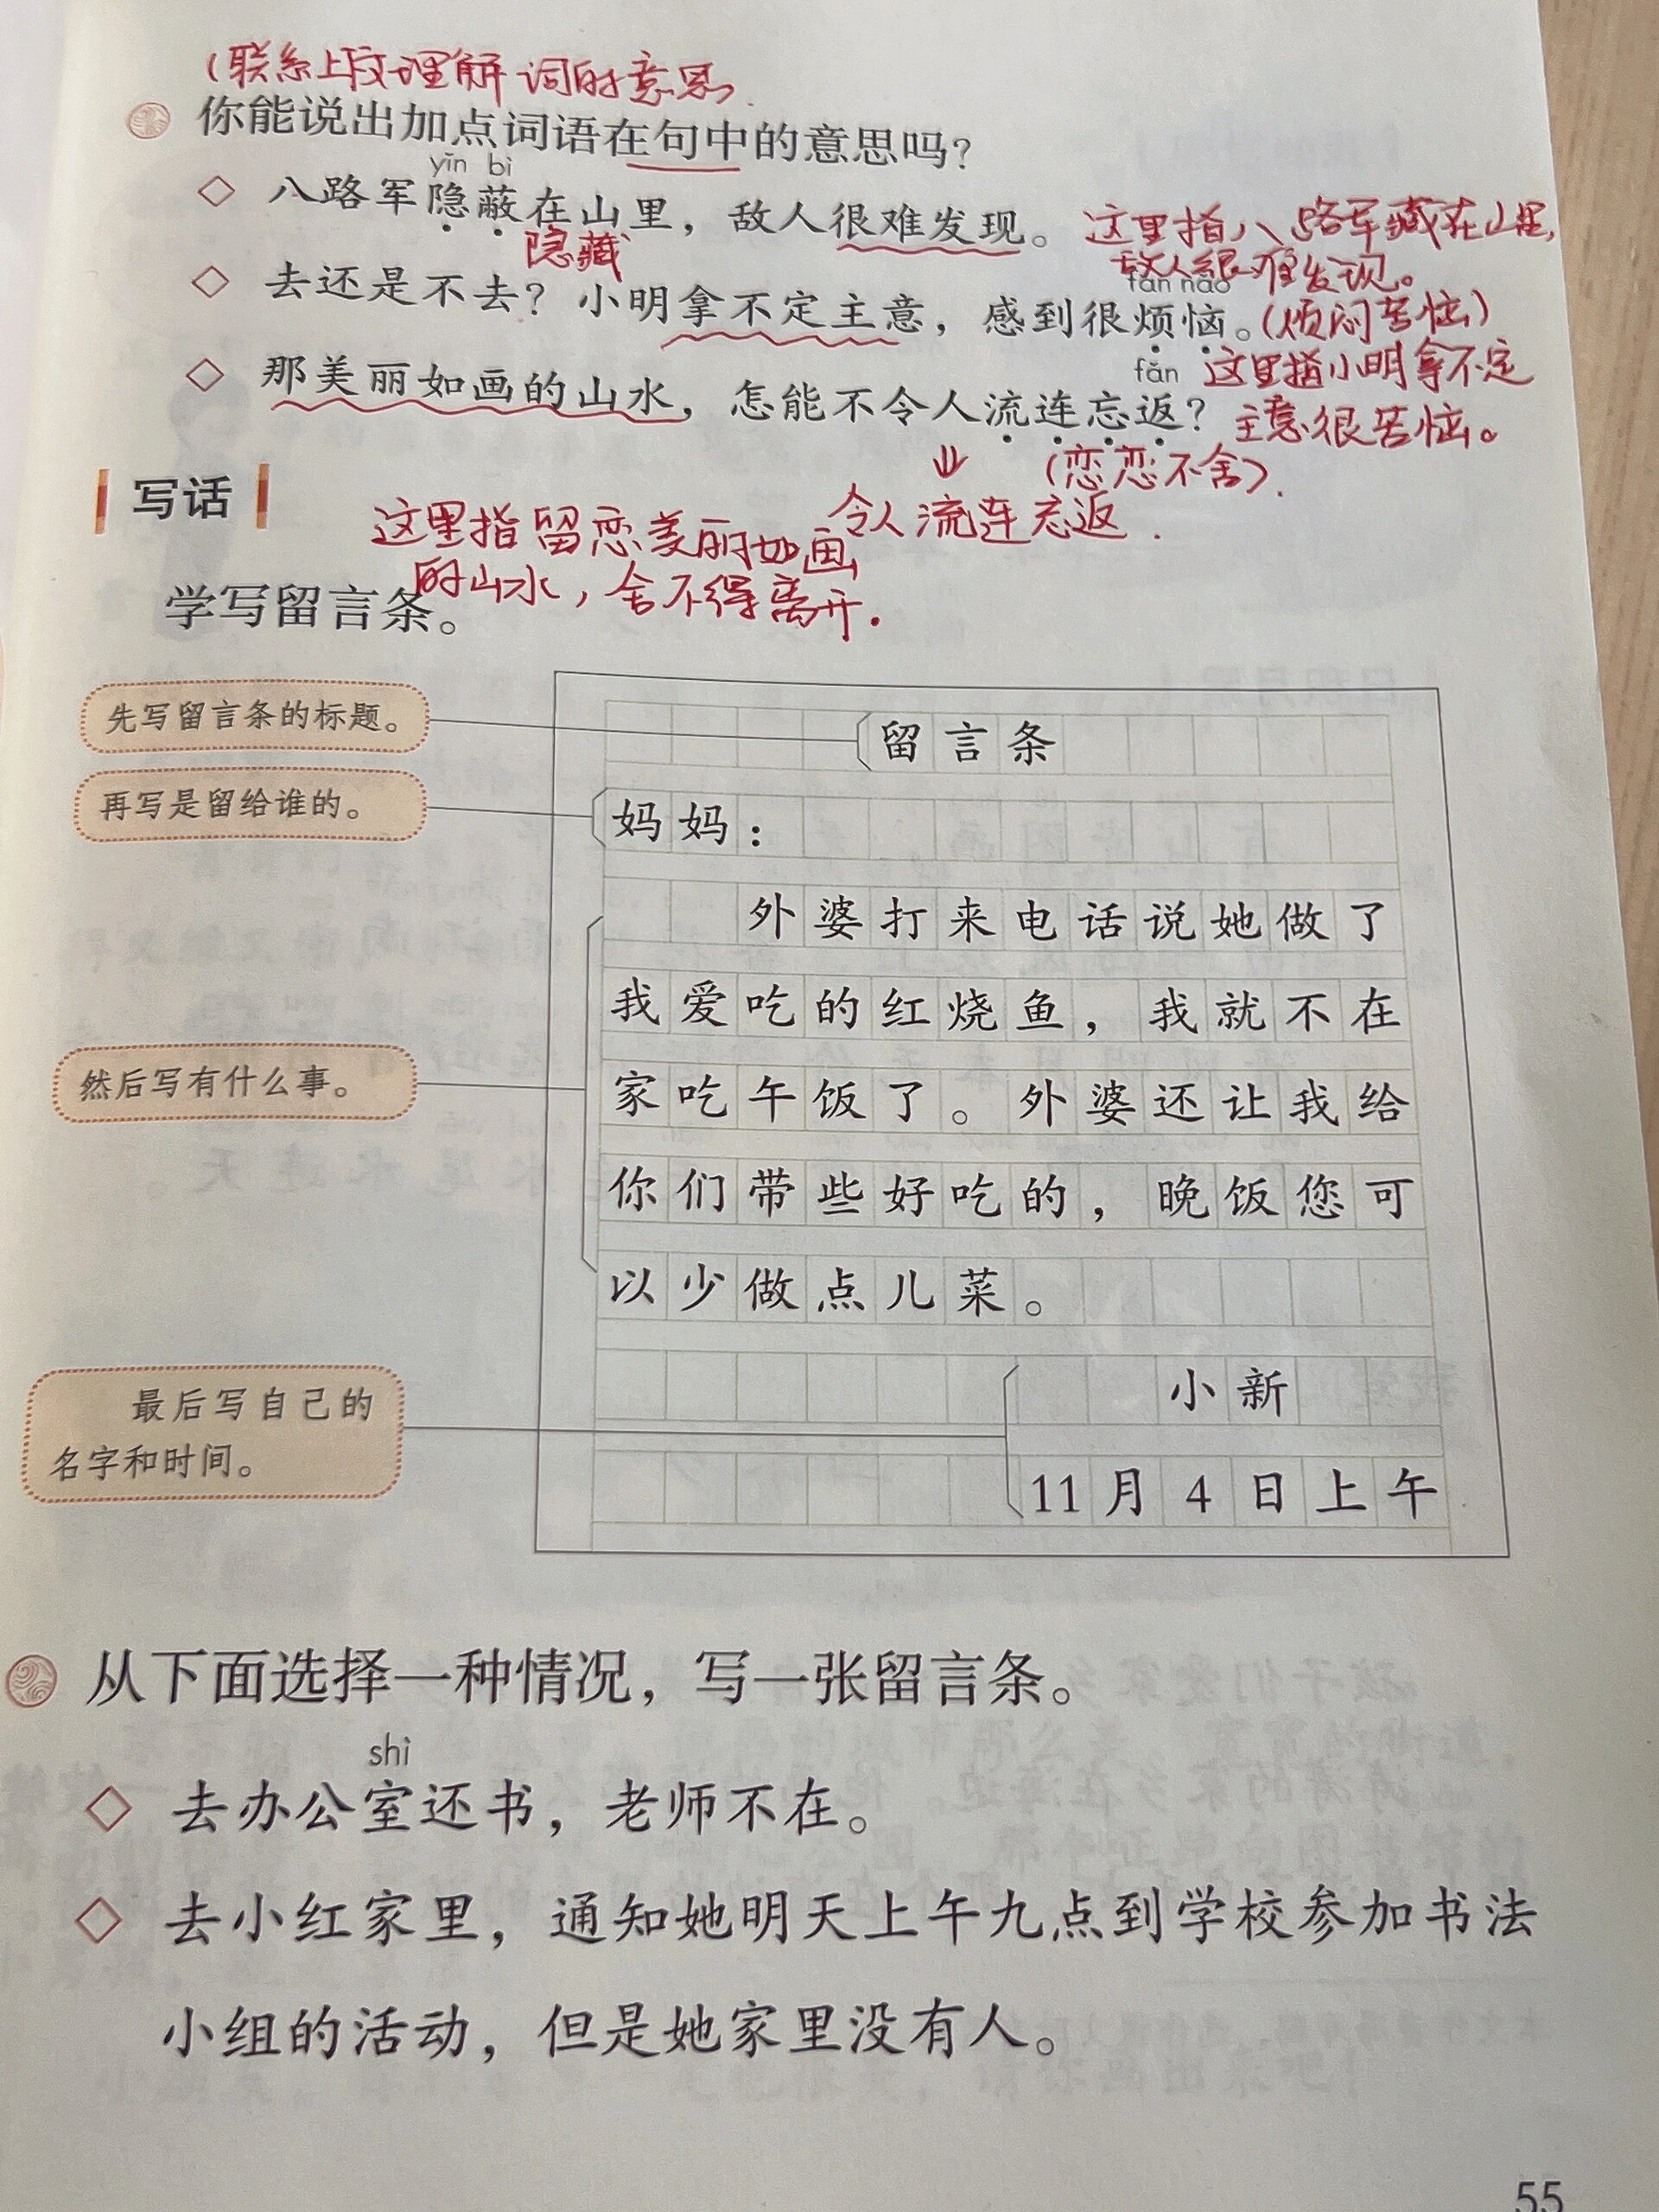 (联系上下文理解词的意思.
你能说出加点词语在句中的意思吗？
yǐn bì
八路军隐蔽在山里，敌人很难发现。
隐藏
这里指八路军藏在山里，
敌人很难发现。
fán nǎo
去还是不去？小明拿不定主意，感到很烦恼。
(烦闷苦恼)
这里指小明拿不定
主意很苦恼。
fǎn
那美丽如画的山水，怎能不令人流连忘返？
(恋恋不舍).
令人流连忘返.
这里指留恋美丽如画
的山水，舍不得离开.
写话
学写留言条。
先写留言条的标题。
留言条
再写是留给谁的。
妈妈：
然后写有什么事。
外婆打来电话说她做了
我爱吃的红烧鱼，我就不在
家吃午饭了。外婆还让我给
你们带些好吃的，晚饭您可
以少做点儿菜。
最后写自己的
名字和时间。
小新
11月4日上午
从下面选择一种情况，写一张留言条。
shì
去办公室还书，老师不在。
去小红家里，通知她明天上午九点到学校参加书法
小组的活动，但是她家里没有人。
55